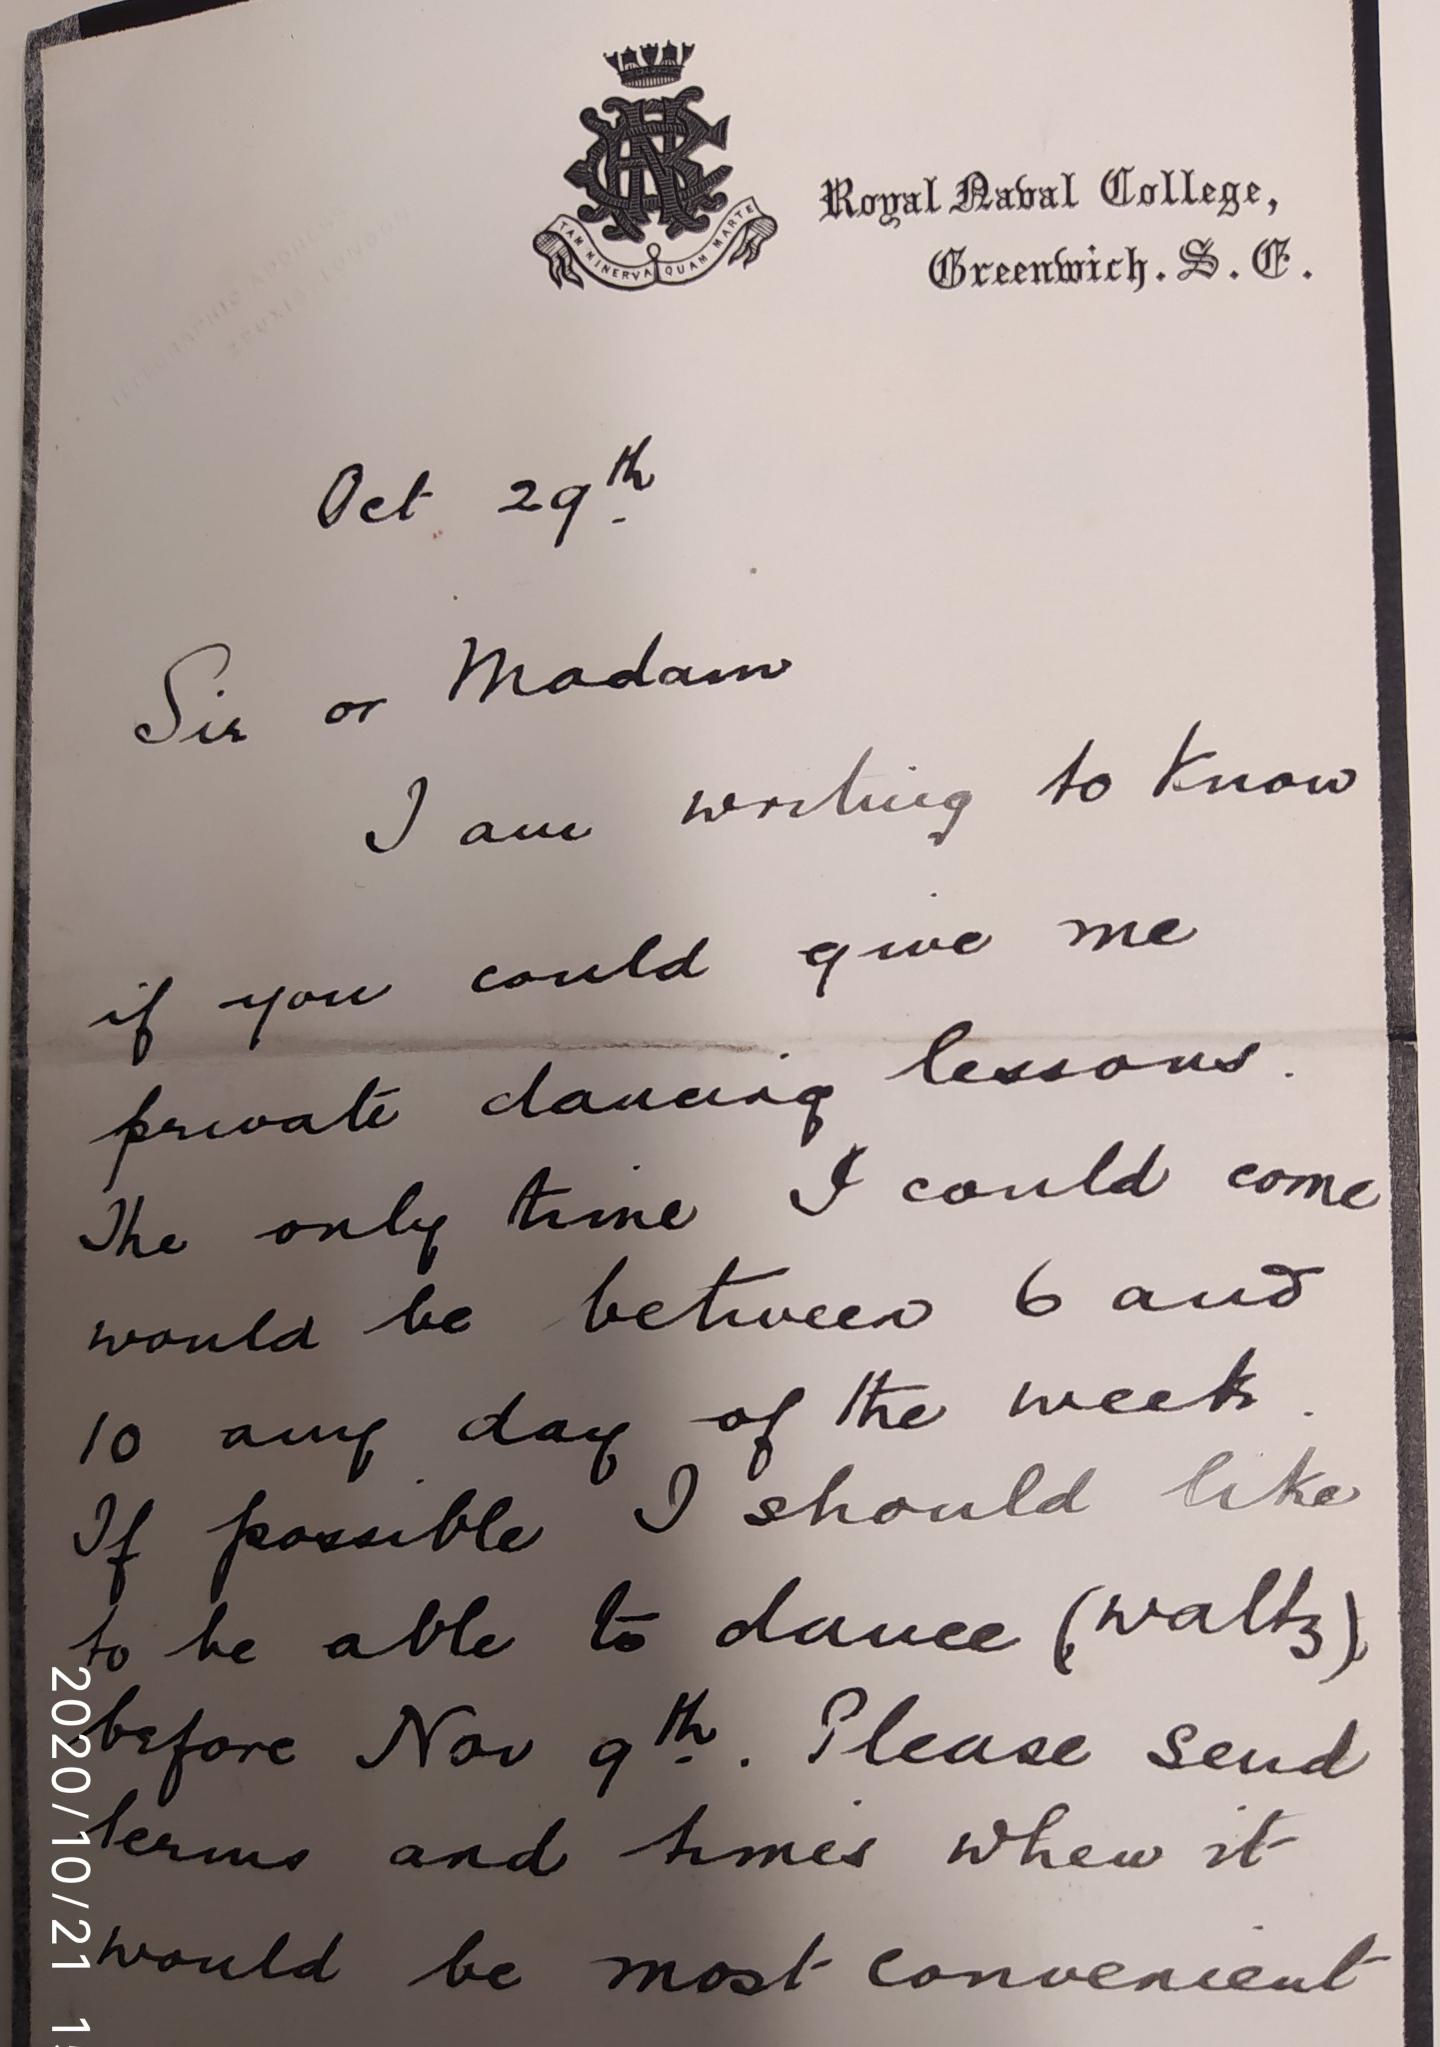 TAM MINERVA QUAM MARTE
Royal Naval College,
Greenwich. S. E.
TELEGRAPHIC ADDRESS
LONDON
Oct 29th
Sir or Madam
I am writing to know
if you could give me
private dancing lessons.
The only time I could come
would be between 6 and
10 any day of the week.
If possible I should like
to be able to dance (waltz)
before Nov 9th. Please send
terms and times when it
would be most convenient
2020/10/21